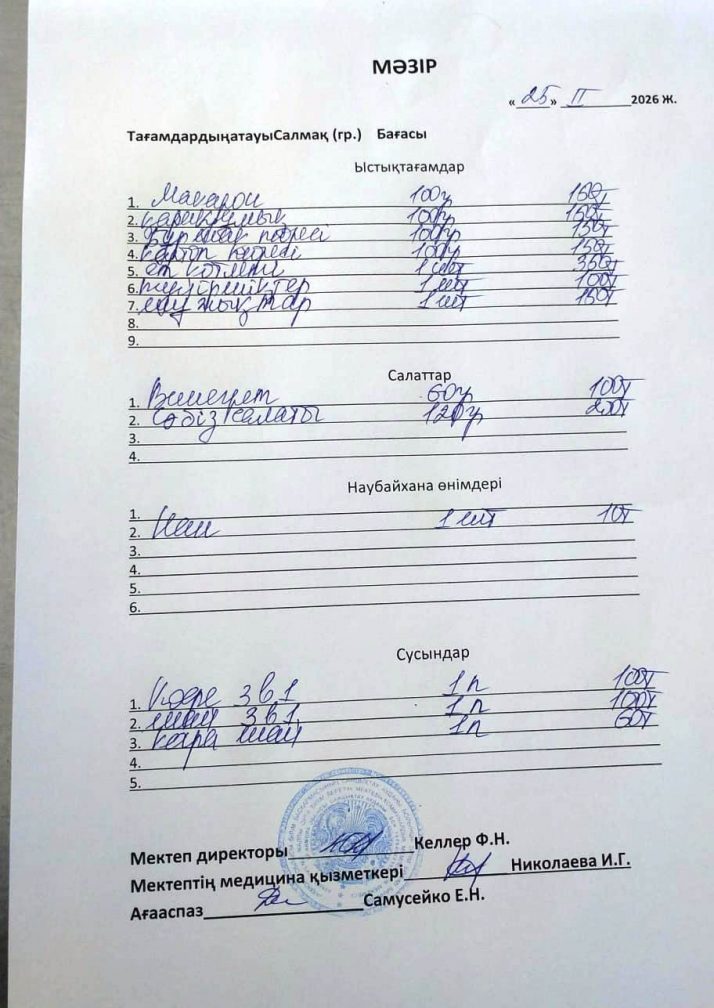 МӘЗІР
« 25 » II 2026 Ж.
ТағамдардыңатауыСалмақ (гр.) Бағасы
Ыстықтағамдар
1. Макарон 100гр 150т
2. қарақұмық 100гр 150т
3. Бұршақ пюресі 100гр 150т
4. картоп пюресі 100гр 150т
5. ет котлеті 1 шт 350т
6. 1 шт 100т
7. 1 шт 150т
8.
9.
Салаттар
1. Винегрет 60гр 100т
2. Сәбіз салаты 120гр 200т
3.
4.
Наубайхана өнімдері
1.
2. Нан 1 шт 10т
3.
4.
5.
6.
Сусындар
1. Кофе 3 в 1 1 п 100т
2. шай 3 в 1 1 п 100т
3. қара шай 1п 60т
4.
5.
Мектеп директоры Келлер Ф.Н.
Мектептің медицина қызметкері Николаева И.Г.
Ағааспаз Самусейко Е.Н.